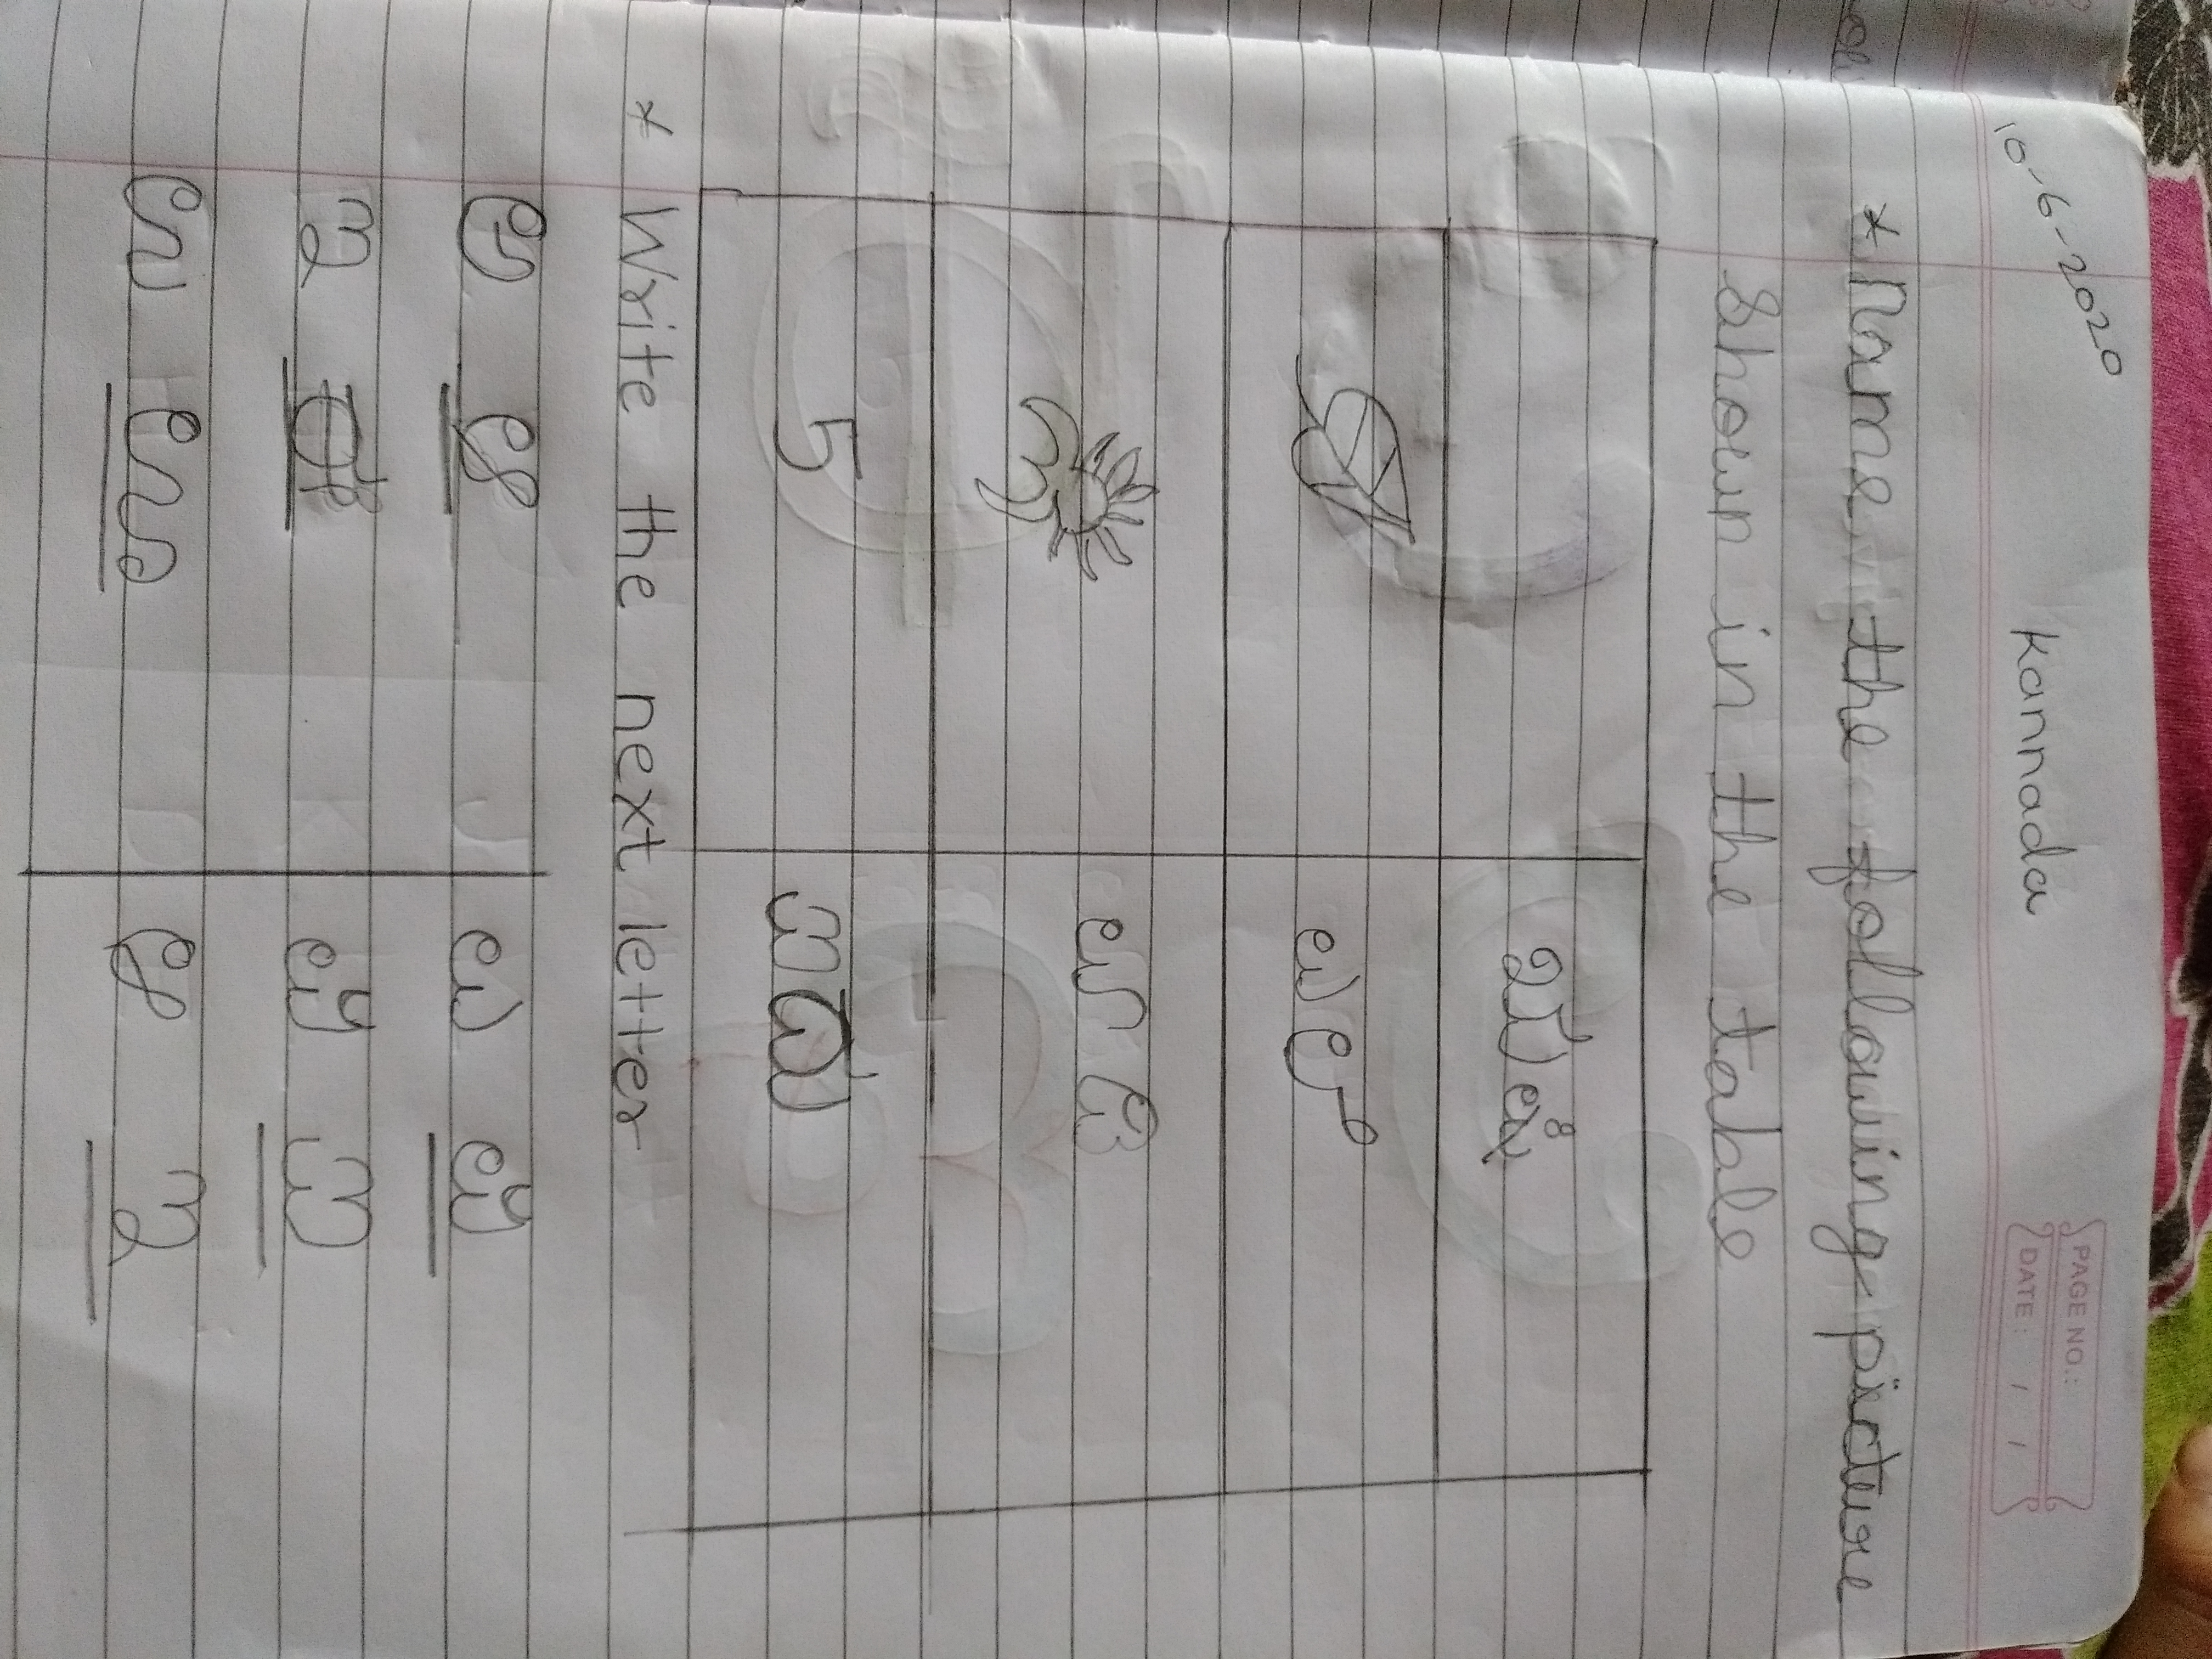 10-6-2020
Kannada
PAGE NO.:
DATE: / /
* Name the following picture
shown in the table
ಎಲೆ
5 ಐದು
* Write the next letter
ಅ ಆ ಎ ಏ
ಇ ಈ ಏ ಐ
ಉ ಊ ಆ ಇ